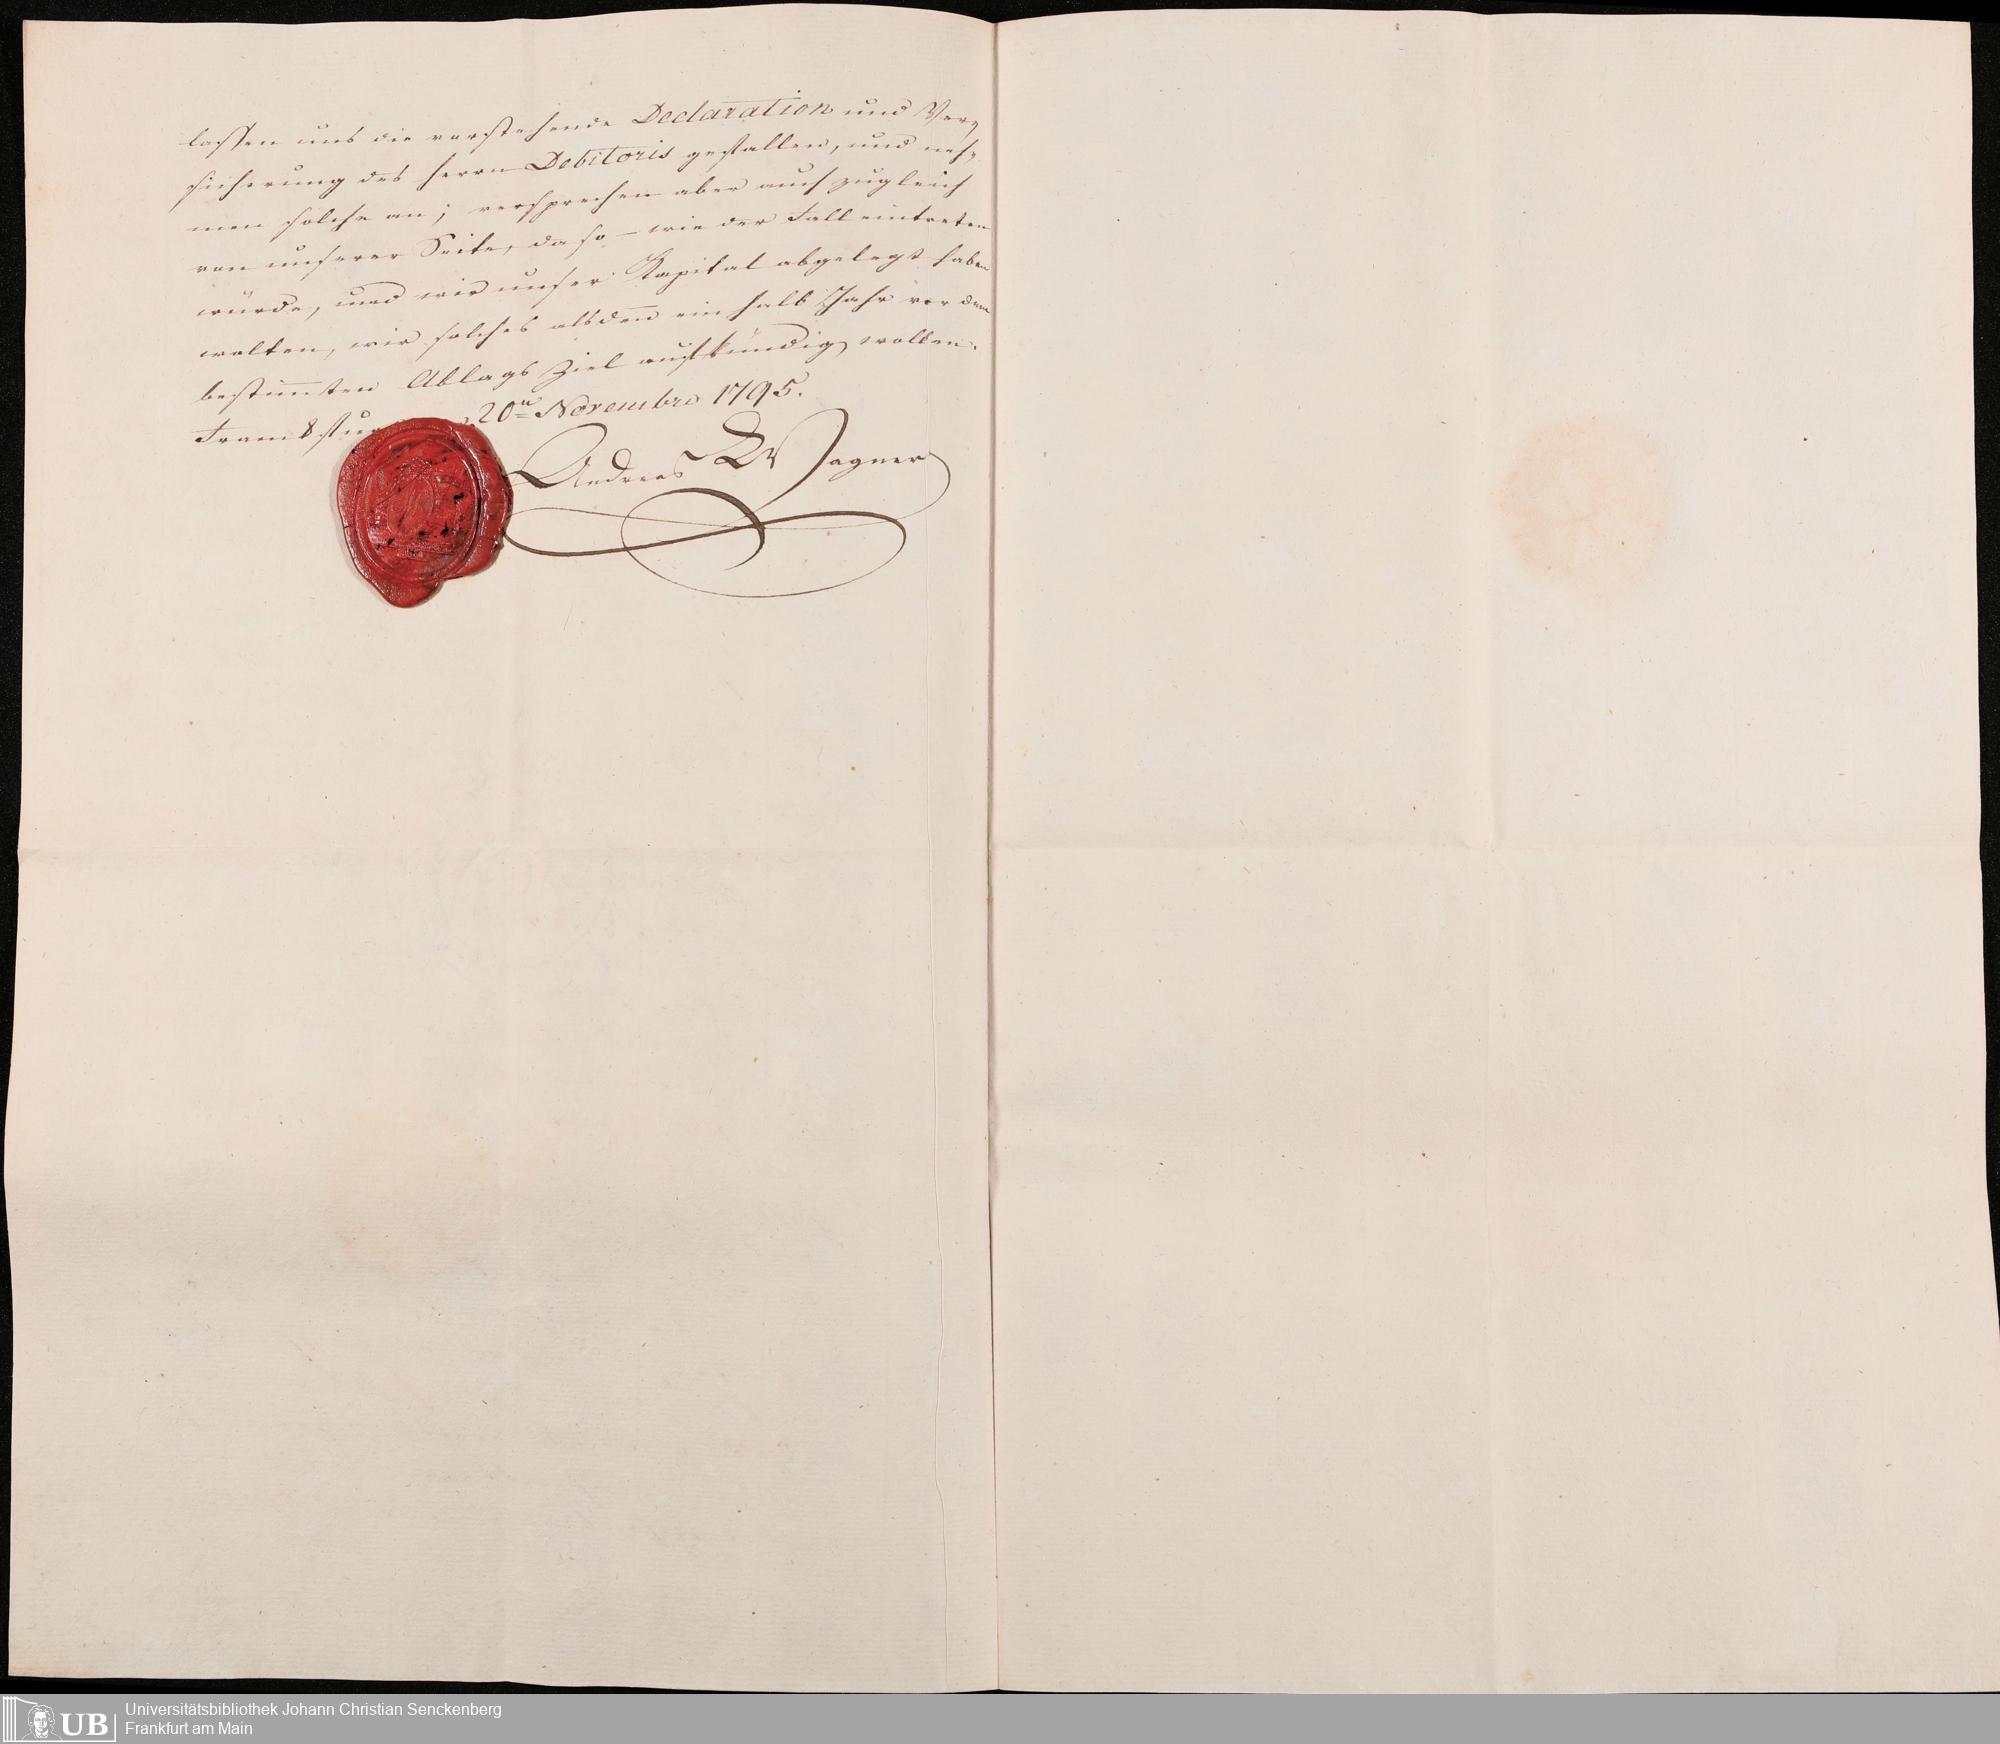 lassen uns die vorstehende Declaration und Ver=
sicherung des Herrn Debitoris gefallen, und neh=
men solche an; versprechen aber auch zugleich
von unserer Seite, daso - wie der Fall eintreten
würde, und wir unser Kapital abgelegt haben
wolten, wir solches alsdenn ein halb Jahr vor dem
bestimten Ablags Ziel aufkündig wollen.
20n Novembre 1795.
Andreas Wagner
UB
Universitätsbibliothek Johann Christian Senckenberg
Frankfurt am Main